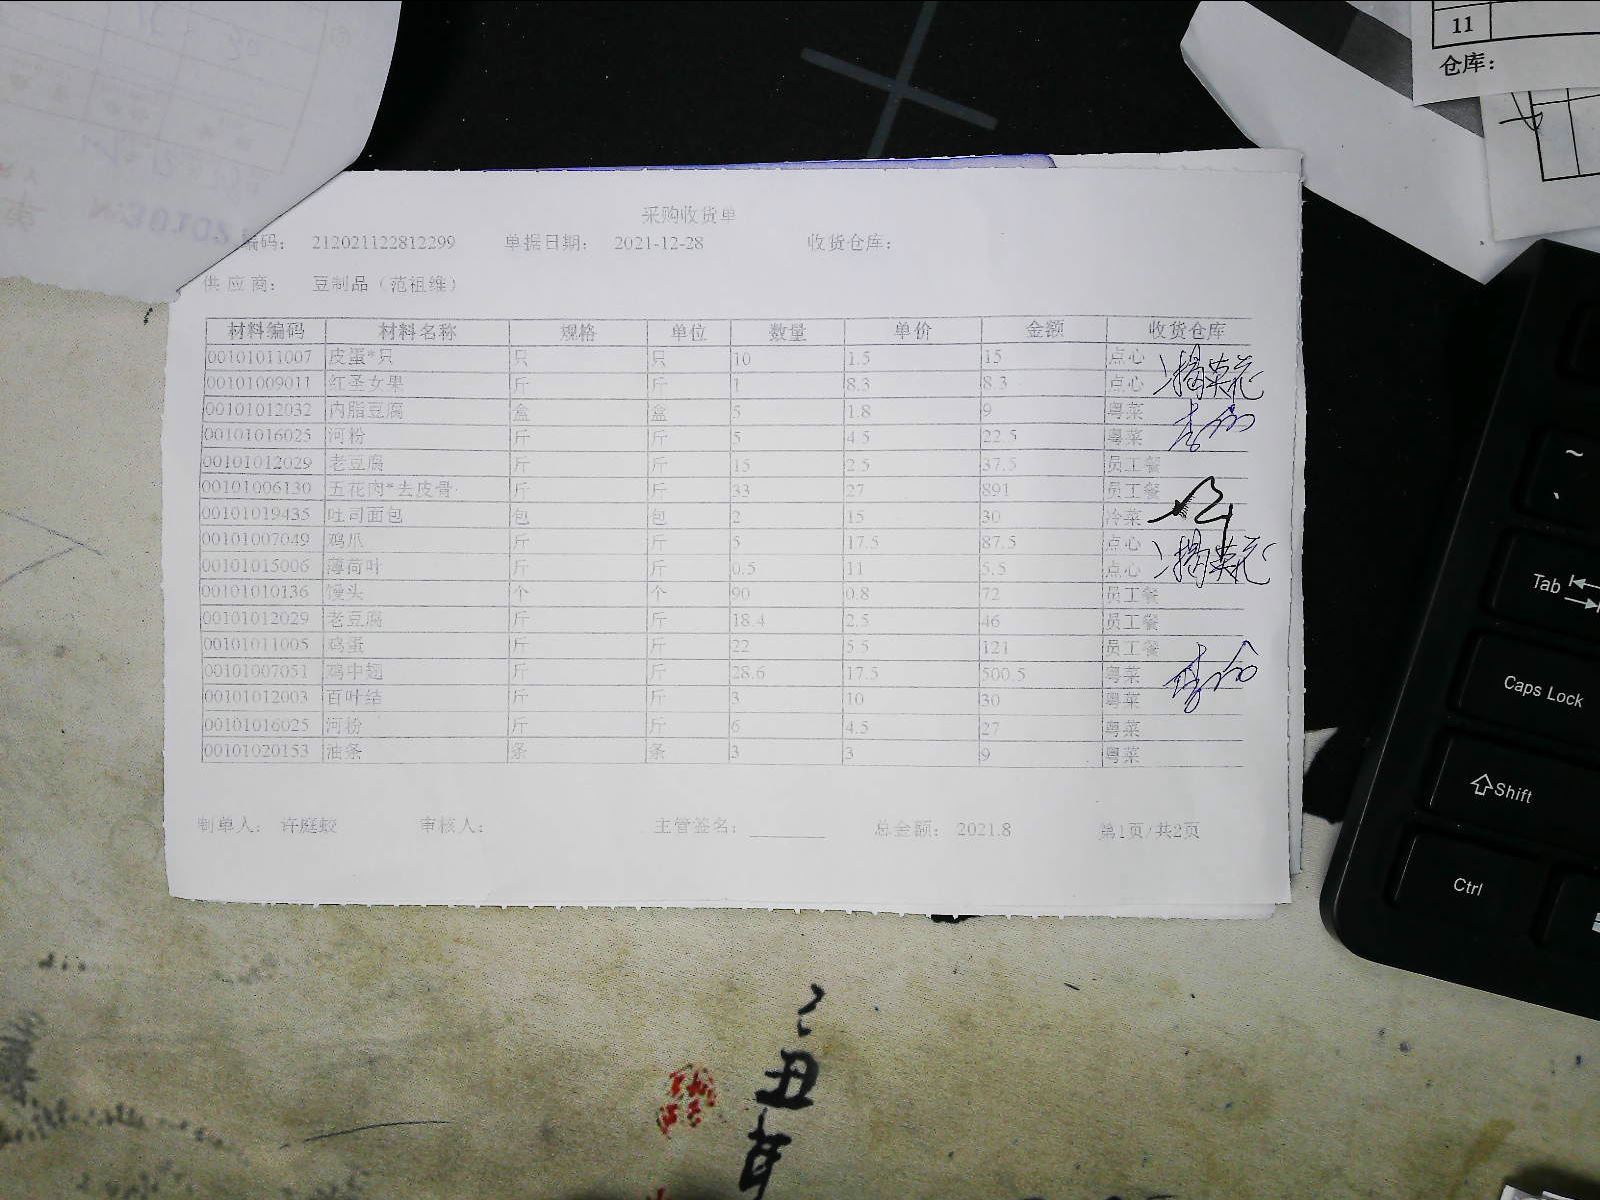 11
仓库:
采购收货单
编码: 212021122812299 单据日期: 2021-12-28 收货仓库:
供应商: 豆制品（范祖维）
材料编码 材料名称 规格 单位 数量 单价 金额 收货仓库
00101011007 皮蛋*只 只 只 10 1.5 15 点心
00101009011 红圣女果 斤 斤 1 8.3 8.3 点心
00101012032 内脂豆腐 盒 盒 5 1.8 9 粤菜
00101016025 河粉 斤 斤 5 4.5 22.5 粤菜
00101012029 老豆腐 斤 斤 15 2.5 37.5 员工餐
00101006130 五花肉*去皮骨 斤 斤 33 27 891 员工餐
00101019435 吐司面包 包 包 2 15 30 冷菜
00101007049 鸡爪 斤 斤 5 17.5 87.5 点心
00101015006 薄荷叶 斤 斤 0.5 11 5.5 点心
00101010136 馒头 个 个 90 0.8 72 员工餐
00101012029 老豆腐 斤 斤 18.4 2.5 46 员工餐
00101011005 鸡蛋 斤 斤 22 5.5 121 员工餐
00101007051 鸡中翅 斤 斤 28.6 17.5 500.5 粤菜
00101012003 百叶结 斤 斤 3 10 30 粤菜
00101016025 河粉 斤 斤 6 4.5 27 粤菜
00101020153 油条 条 条 3 3 9 粤菜
制单人: 许庭蛟 审核人: 主管签名: 总金额: 2021.8 第1页/共2页
~
Tab
Caps Lock
Shift
Ctrl
丑